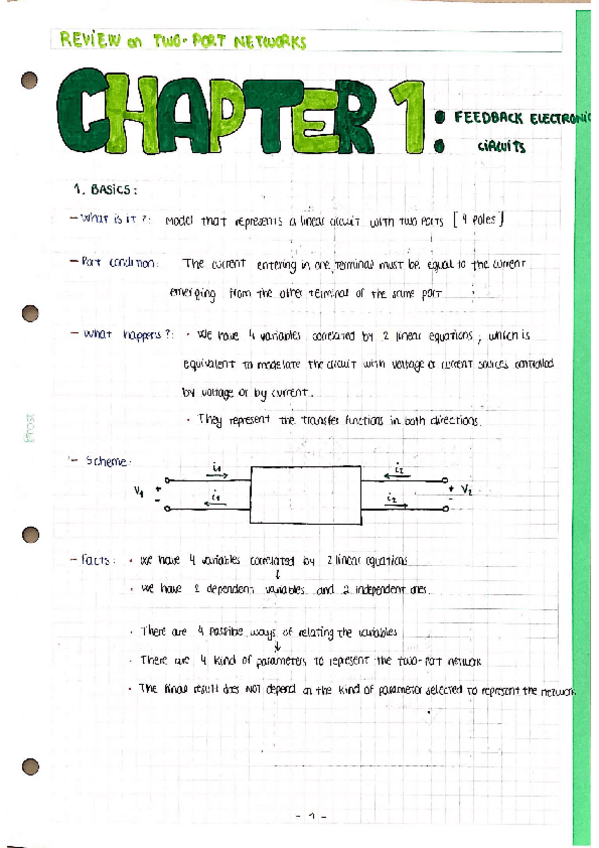 REVIEW on TWO-PORT NETWORKS
CHAPTER 1:
FEEDBACK ELECTRONIC
CIRCUITS
1. BASICS:
- What is it?: Model that represents a linear circuit with two ports [4 poles]
- Port condition: The current entering in one terminal must be equal to the current
emerging from the other terminal of the same port
- What happens?: · We have 4 variables correlated by 2 linear equations, which is
equivalent to modelate the circuit with voltage or current sources controlled
by voltage or by current.
· They represent the transfer functions in both directions.
- Scheme:
i1 i2
V1 + - + - V2
i1 i2
- Facts: · We have 4 variables correlated by 2 linear equations
↓
· We have 2 dependent variables and 2 independent ones.
· There are 4 possible ways of relating the variables
↓
· There are 4 kind of parameters to represent the two-port network
· The final result does NOT depend on the kind of parameter selected to represent the network.
- 1 -